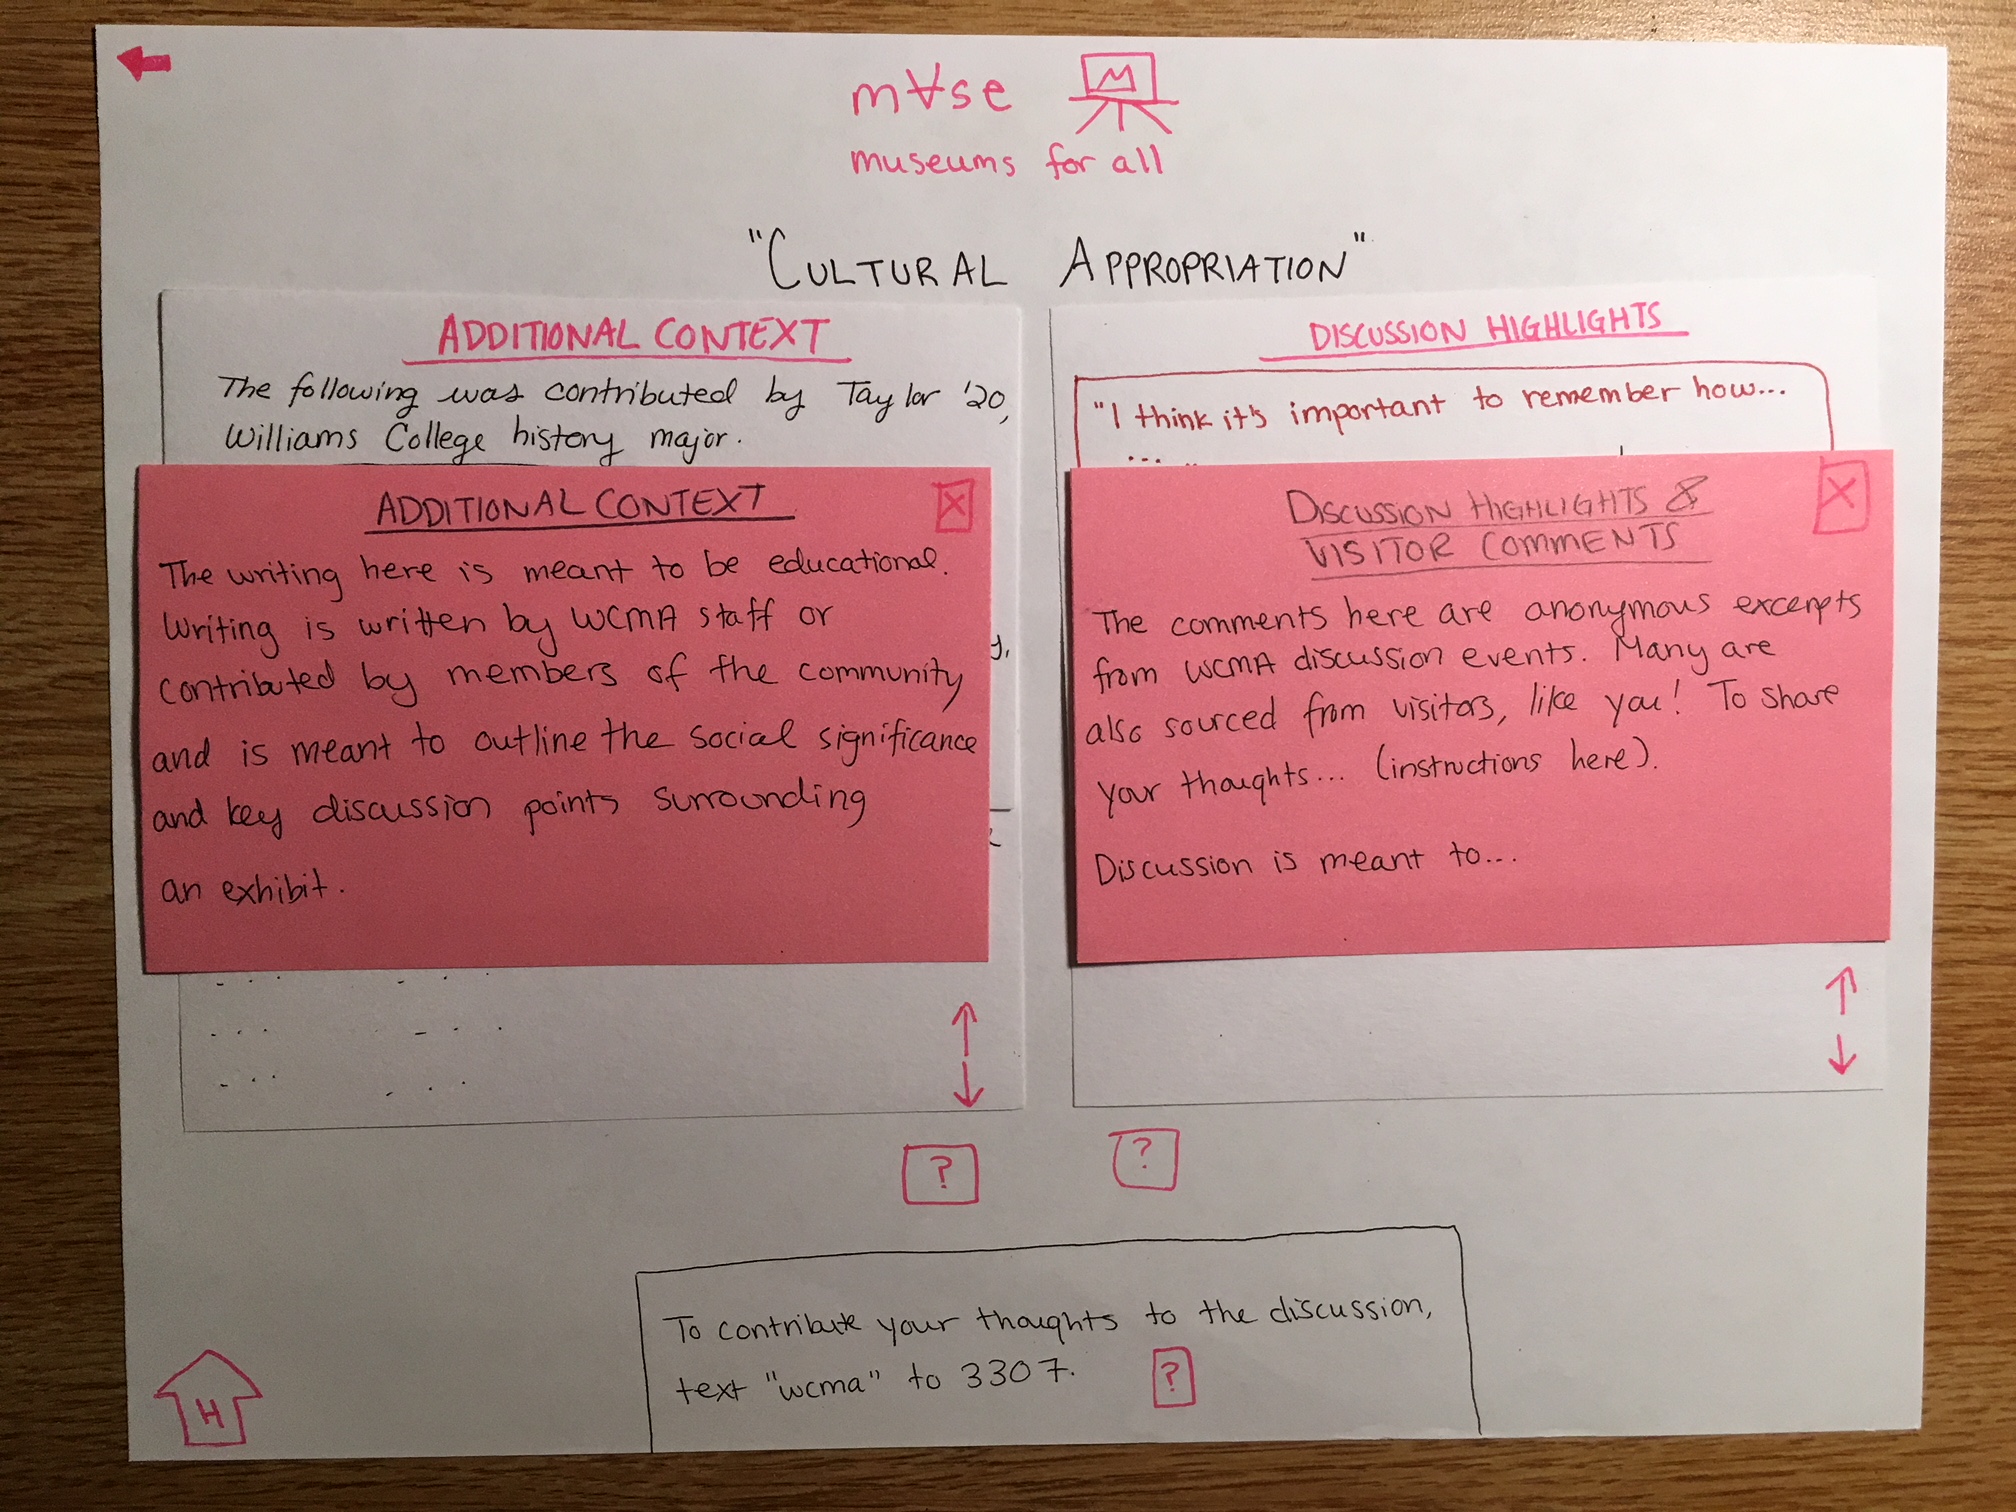 m∀se
M
museums for all
"CULTURAL APPROPRIATION"
ADDITIONAL CONTEXT
The following was contributed by Taylor '20,
Williams College history major.
ADDITIONAL CONTEXT
X
The writing here is meant to be educational.
Writing is written by WCMA staff or
contributed by members of the community
and is meant to outline the social significance
and key discussion points surrounding
an exhibit.
?
DISCUSSION HIGHLIGHTS
"I think it's important to remember how...
... "
DISCUSSION HIGHLIGHTS &
VISITOR COMMENTS
X
The comments here are anonymous excerpts
from WCMA discussion events. Many are
also sourced from visitors, like you! To share
your thoughts... (instructions here).
Discussion is meant to...
?
To contribute your thoughts to the discussion,
text "wcma" to 3307. ?
H